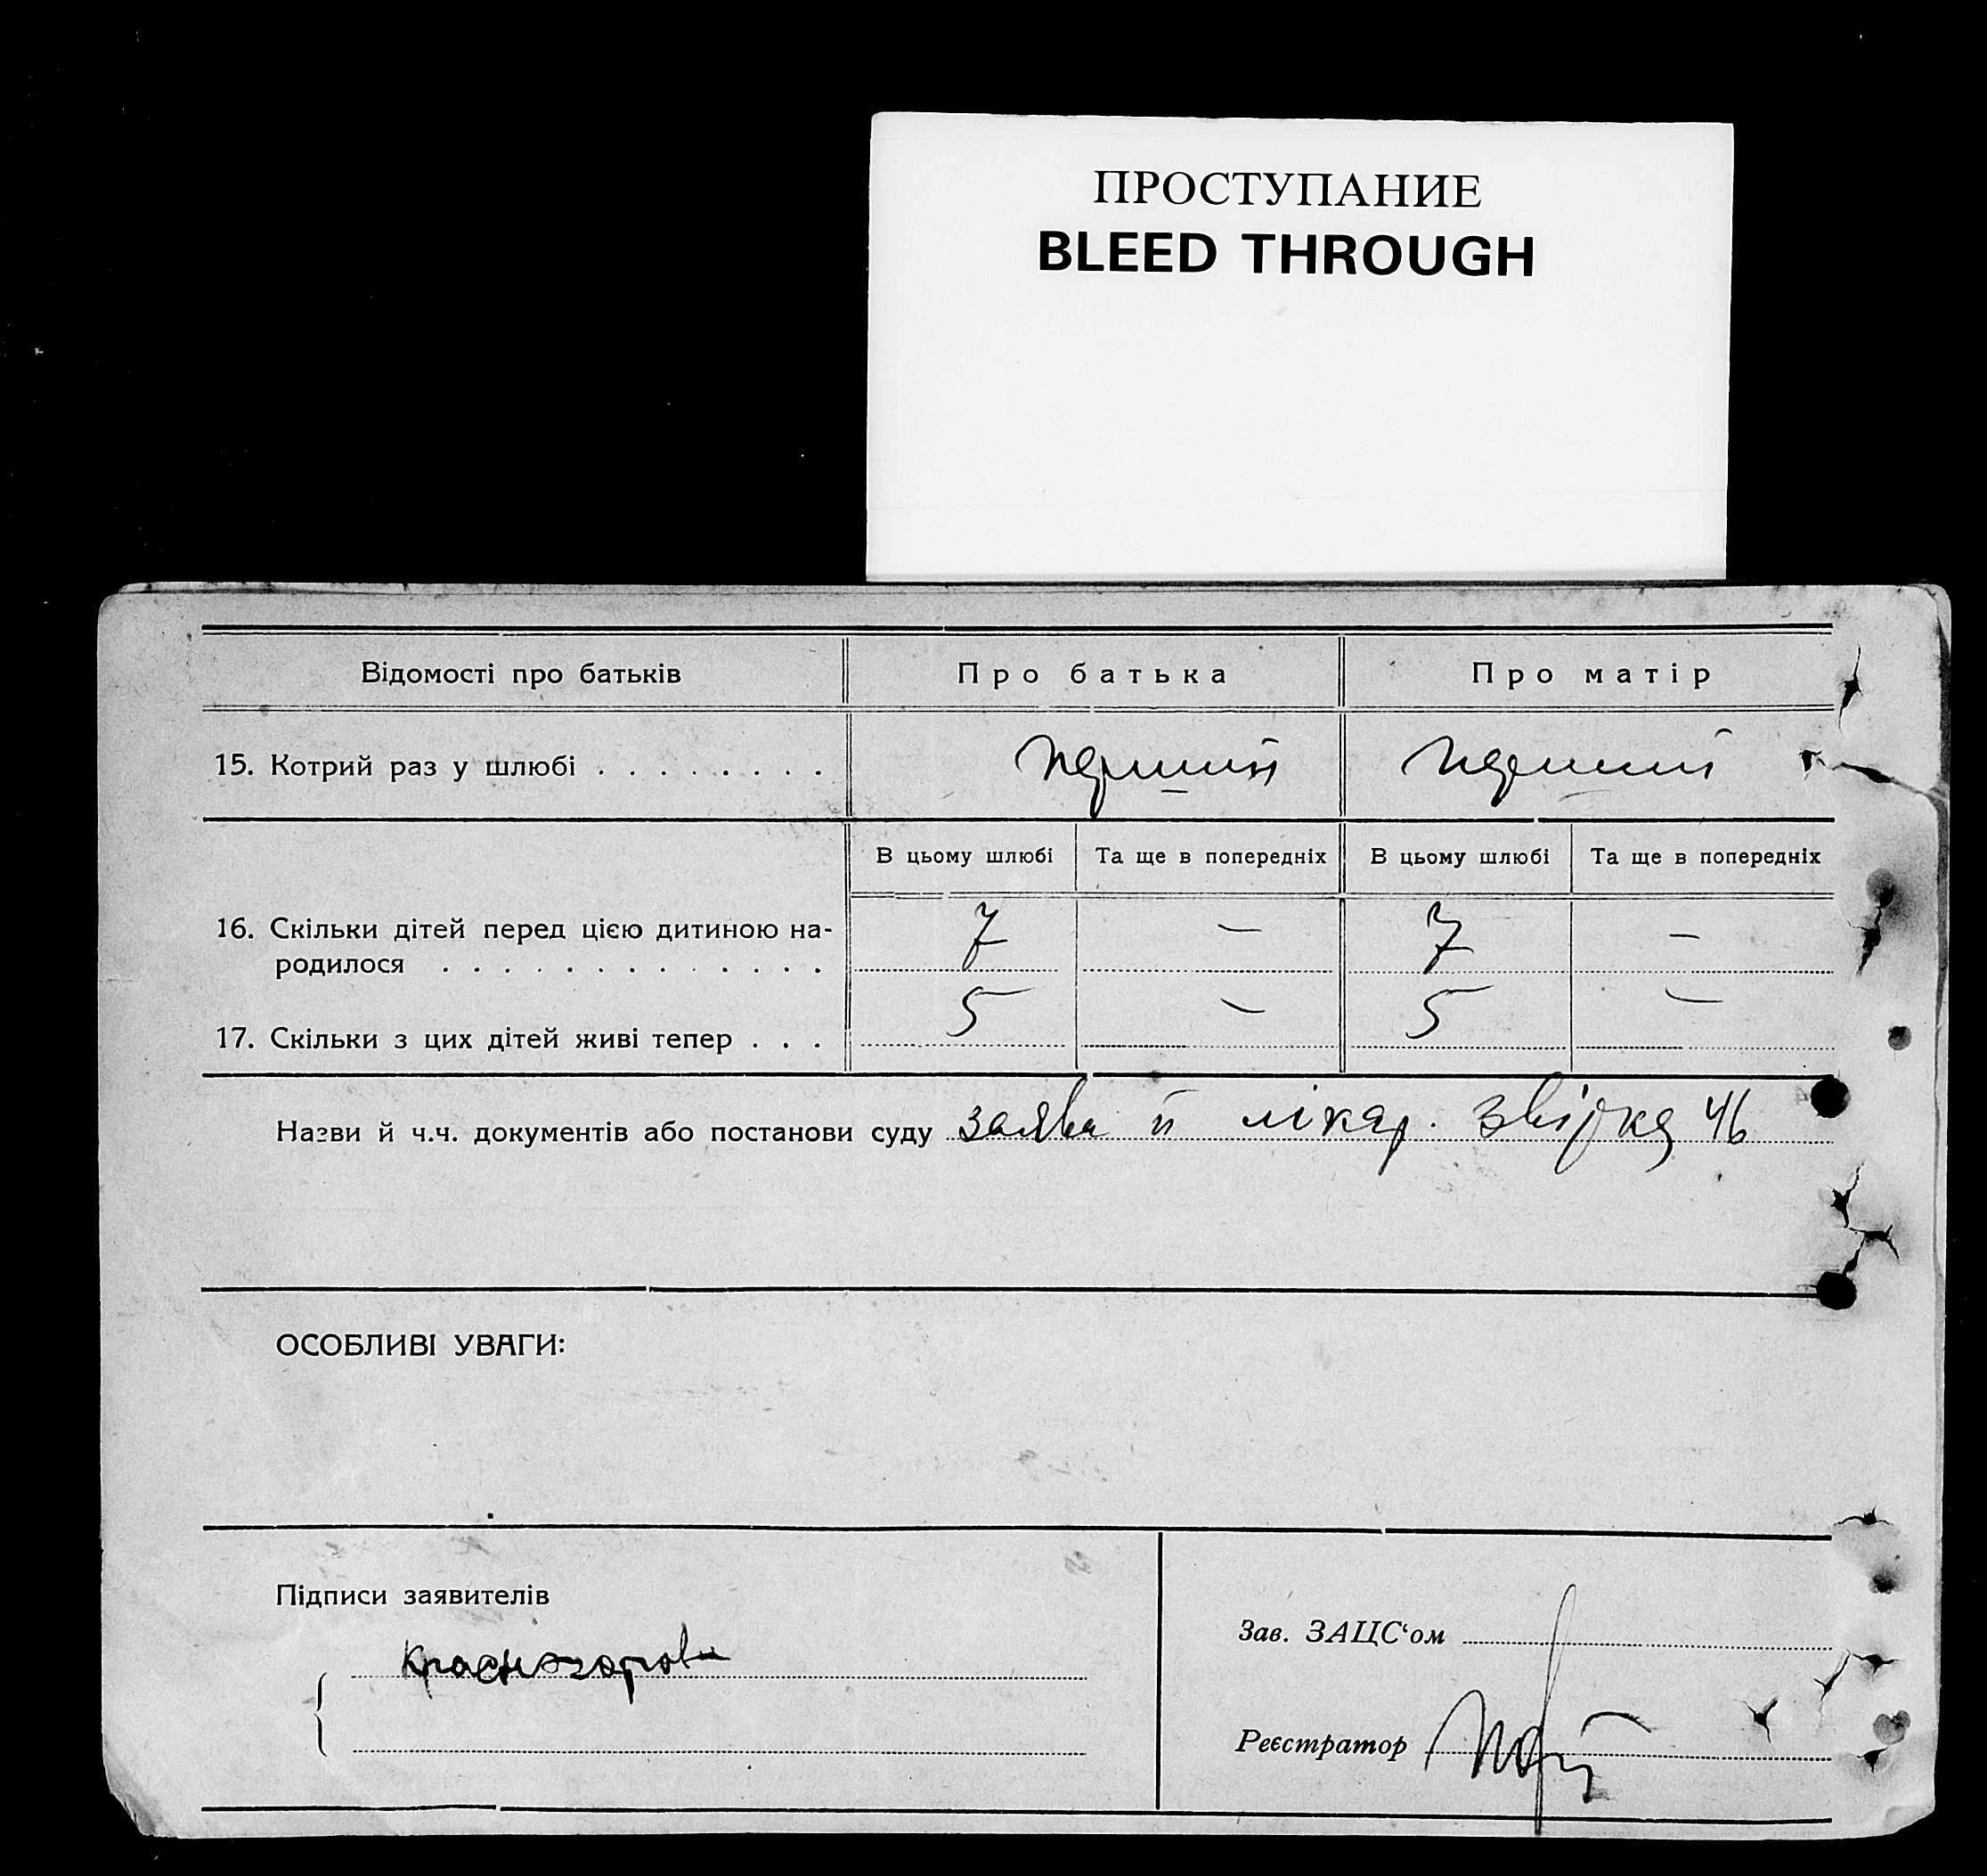 ПРОСТУПАНИЕ
BLEED THROUGH
Відомості про батьків
Про батька
Про матір
15. Котрий раз у шлюбі . . . . . . . .
перший
перший
В цьому шлюбі
Та ще в попередніх
В цьому шлюбі
Та ще в попередніх
16. Скільки дітей перед цією дитиною на-
родилося . . . . . . . . . . . . .
7
—
7
—
17. Скільки з цих дітей живі тепер . . .
5
—
5
—
Назви й ч.ч. документів або постанови суду заява й лікар. 46
ОСОБЛИВІ УВАГИ:
Підписи заявителів
Зав. ЗАЦС‘ом
Реєстратор